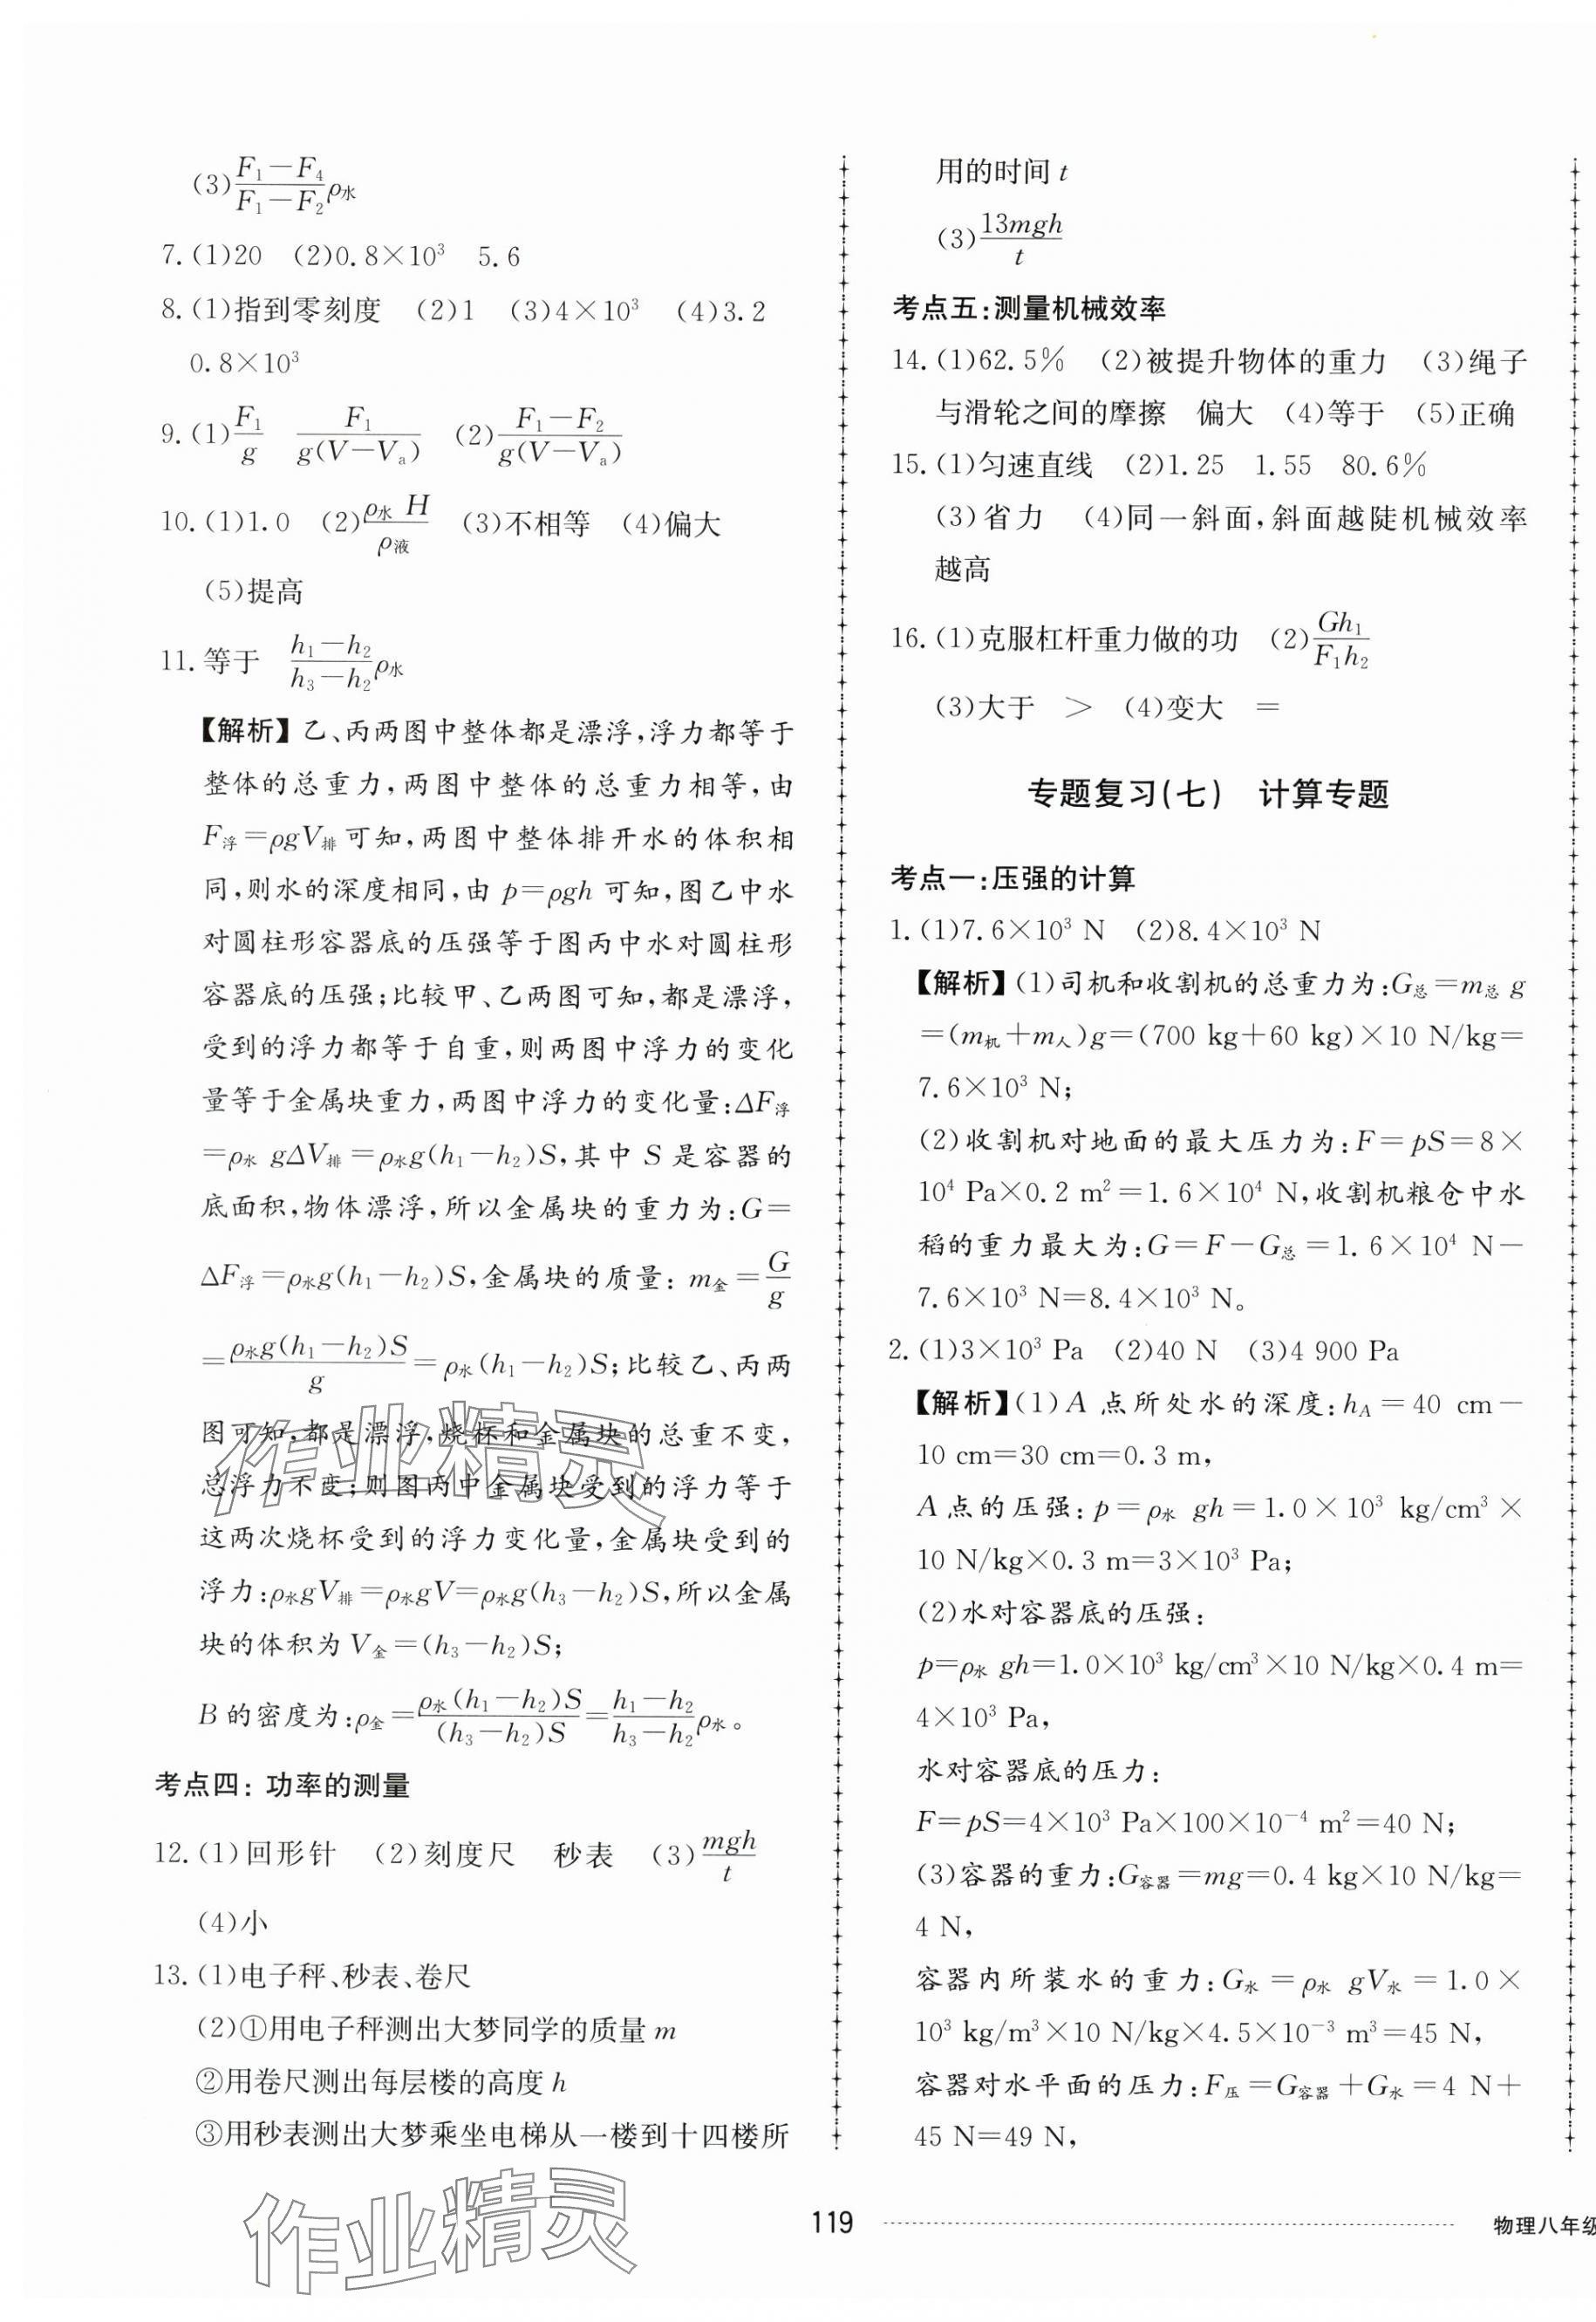 (3)\frac{F₁-F₄}{F₁-F₂}ρ水
7.(1)20 (2)0.8×10³ 5.6
8.(1)指到零刻度 (2)1 (3)4×10³ (4)3.2
0.8×10³
9.(1)\frac{F₁}{g} \frac{F₁}{g(V-Vₐ)} (2)\frac{F₁-F₂}{g(V-Vₐ)}
10.(1)1.0 (2)\frac{ρ水 H}{ρ液} (3)不相等 (4)偏大
(5)提高
11.等于 \frac{h₁-h₂}{h₃-h₂}ρ水
【解析】乙、丙两图中整体都是漂浮,浮力都等于
整体的总重力,两图中整体的总重力相等,由
F浮=ρgV排可知,两图中整体排开水的体积相
同,则水的深度相同,由 p=ρgh 可知,图乙中水
对圆柱形容器底的压强等于图丙中水对圆柱形
容器底的压强;比较甲、乙两图可知,都是漂浮,
受到的浮力都等于自重,则两图中浮力的变化
量等于金属块重力,两图中浮力的变化量:ΔF浮
=ρ水 gΔV排=ρ水g(h₁-h₂)S,其中 S 是容器的
底面积,物体漂浮,所以金属块的重力为:G=
ΔF浮=ρ水g(h₁-h₂)S,金属块的质量: m金=\frac{G}{g}
=\frac{ρ水g(h₁-h₂)S}{g}=ρ水(h₁-h₂)S;比较乙、丙两
图可知,都是漂浮,烧杯和金属块的总重不变,
总浮力不变;则图丙中金属块受到的浮力等于
这两次烧杯受到的浮力变化量,金属块受到的
浮力:ρ水gV排=ρ水gV=ρ水g(h₃-h₂)S,所以金属
块的体积为 V金=(h₃-h₂)S;
B 的密度为:ρ金=\frac{ρ水(h₁-h₂)S}{(h₃-h₂)S}=\frac{h₁-h₂}{h₃-h₂}ρ水。
考点四: 功率的测量
12.(1)回形针 (2)刻度尺 秒表 (3)\frac{mgh}{t}
(4)小
13.(1)电子秤、秒表、卷尺
(2)①用电子秤测出大梦同学的质量 m
②用卷尺测出每层楼的高度 h
③用秒表测出大梦乘坐电梯从一楼到十四楼所
用的时间 t
(3)\frac{13mgh}{t}
考点五:测量机械效率
14.(1)62.5% (2)被提升物体的重力 (3)绳子
与滑轮之间的摩擦 偏大 (4)等于 (5)正确
15.(1)匀速直线 (2)1.25 1.55 80.6%
(3)省力 (4)同一斜面,斜面越陡机械效率
越高
16.(1)克服杠杆重力做的功 (2)\frac{Gh₁}{F₁h₂}
(3)大于 > (4)变大 =
专题复习(七) 计算专题
考点一:压强的计算
1.(1)7.6×10³ N (2)8.4×10³ N
【解析】(1)司机和收割机的总重力为:G总=m总 g
=(m机+m人)g=(700 kg+60 kg)×10 N/kg=
7.6×10³ N;
(2)收割机对地面的最大压力为:F=pS=8×
10⁴ Pa×0.2 m²=1.6×10⁴ N,收割机粮仓中水
稻的重力最大为:G=F-G总=1.6×10⁴ N-
7.6×10³ N=8.4×10³ N。
2.(1)3×10³ Pa (2)40 N (3)4 900 Pa
【解析】(1)A 点所处水的深度:hA=40 cm-
10 cm=30 cm=0.3 m,
A 点的压强:p=ρ水 gh=1.0×10³ kg/cm³×
10 N/kg×0.3 m=3×10³ Pa;
(2)水对容器底的压强:
p=ρ水 gh=1.0×10³ kg/cm³×10 N/kg×0.4 m=
4×10³ Pa,
水对容器底的压力:
F=pS=4×10³ Pa×100×10⁻⁴ m²=40 N;
(3)容器的重力:G容器=mg=0.4 kg×10 N/kg=
4 N,
容器内所装水的重力:G水=ρ水 gV水=1.0×
10³ kg/m³×10 N/kg×4.5×10⁻³ m³=45 N,
容器对水平面的压力:F压=G容器+G水=4 N+
45 N=49 N,
作业精灵
作业精灵
119
物理八年级